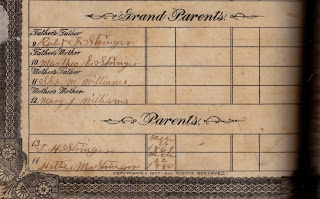 Grand Parents.
Father's Father
9 Robt H Stringer
Father's Mother
10 Martha E. Stringer
Mother's Father
11 M Williams
Mother's Mother
12 Mary J Williams
Parents.
13 T H Stringer
22
1869
14 Hattie Ma Stringer
22
COPYRIGHTED ALL RIGHTS RESERVED